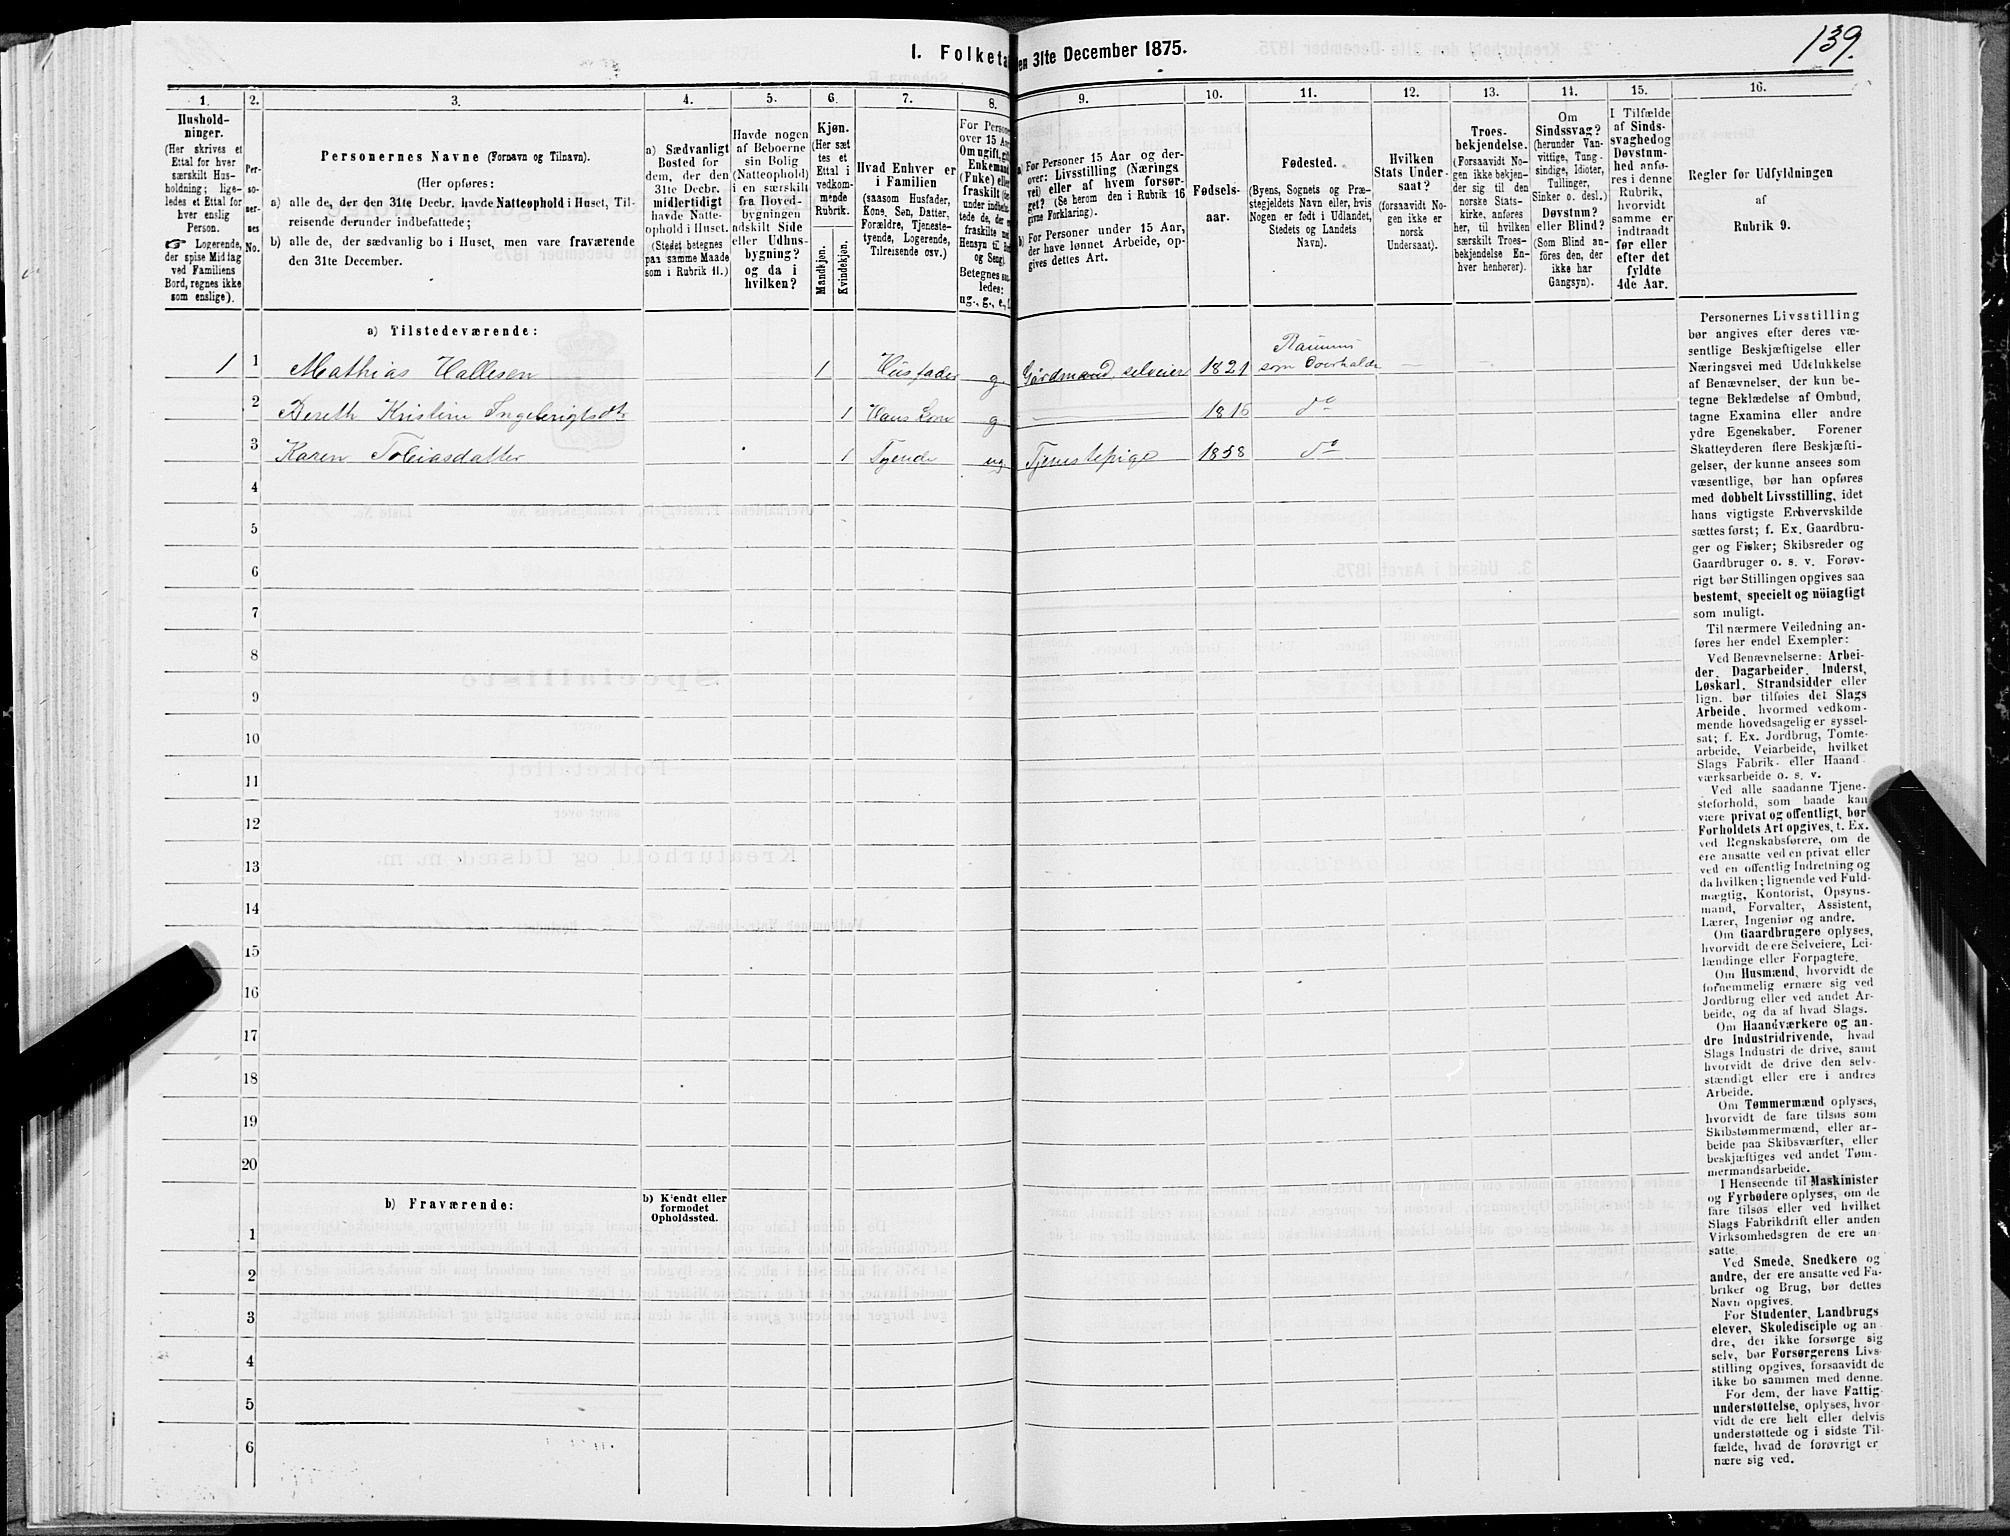 139.
I. Folketa en 31te December 1875.
1. 2. 3. 4. 5. 6. 7. 8. 9. 10. 11. 12. 13. 14. 15. 16.
Hushold-
ninger.
(Her skrives et
Ettal for hver
særskilt Hus-
holdning; lige-
ledes et Ettal for
hver enslig
Person.
☞ Logerende,
der spise Middag
ved Familiens
Bord, regnes ikke
som enslige).
Per-
so-
ner-
nes
No.
Personernes Navne (Fornavn og Tilnavn).
(Her opføres:
a) alle de, der den 31te Decbr. havde Natteophold i Huset, Til-
reisende derunder indbefattede;
b) alle de, der sædvanlig bo i Huset, men vare fraværende
den 31te December.
a) Sædvanligt
Bosted for
dem, der den
31te Decbr.
midlertidigt
havde Natte-
ophold i Huset.
(Stedet betegnes
paa samme Maade
som i Rubrik 11.)
Havde nogen
af Beboerne
sin Bolig
(Natteophold)
i en særskilt
fra Hoved-
bygningen
adskilt Side
eller Udhus-
bygning?
og da i
hvilken?
Kjøn.
(Her sæt
tes et
Ettal i
vedkom-
mende
Rubrik.
Mandkjøn.
Kvindekjøn.
Hvad Enhver er
i Familien
(saasom Husfader,
Kone, Søn, Datter,
Forældre, Tjeneste-
tyende, Logerende,
Tilreisende osv.)
For Persone
over 15 Aar
Om ugift, gif
Enkemand
(Fuke) elle
fraskilt (he
under indbefa
tede de, der e
fraskilte me
Hensyn til B
og Seng).
Betegnes saa
ledes:
ug., g., e., f
a) For Personer 15 Aar og der-
over: Livsstilling (Nærings
vei) eller af hvem forsør-
get? (Se herom den i Rubrik 16
givne Forklaring).
b) For Personer under 15 Aar,
der have lønnet Arbeide, op-
gives dettes Art.
Fødsels-
aar.
Fødested.
(Byens, Sognets og Præ-
stegjeldets Navn eller, hvis
Nogen er født i Udlandet,
Stedets og Landets
Navn).
Hvilken
Stats Under-
saat?
(forsaavidt No-
gen ikke er
norsk
Undersaat).
Troes-
bekjendelse.
(Forsaavidt No-
gen ikke bekjen-
der sig til den
norske Stats-
kirke, anføres
her, til hvilken
særskilt Troes-
bekjendelse En-
hver henhører).
Om
Sindssvag?
(herunder Van-
vittige, Tung-
sindige, Idioter,
Tullinger,
Sinker o. desl.)
Døvstum?
eller Blind?
(Som Blind an-
føres den, der
ikke har
Gangsyn).
I Tilfælde
af Sinds-
svaghed og
Døvstum-
hed anfø-
res i denne
Rubrik,
hvorvidt
samme er
indtraadt
før eller
efter det
fyldte
4de Aar.
Regler for Udfyldningen
af
Rubrik 9.
a) Tilstedeværende:
1 1 Mathias Hallesen 1 Husfader g. Gårdmand, selveier 1821 Ranums sogn Overhalde — —
2 Bereth Kristine Ingebrigtsdtr 1 Hans Kone g — 1816 do
3 Karen Tobiasdatter 1 Tyende ug. Tjenestepige 1858 do
4
5
6
7
8
9
10
11
12
13
14
15
16
17
18
19
20
b) Fraværende:
b) Kjendt eller
formodet
Opholdssted.
1
2
3
4
5
6
Personernes Livsstilling
bør angives efter deres væ-
sentlige Beskjæftigelse eller
Næringsvei med Udelukkelse
af Benævnelser, der kun be-
tegne Beklædelse af Ombud,
tagne Examina eller andre
ydre Egenskaber. Forener
Skatteyderen flere Beskjæfti-
gelser, der kunne ansees som
væsentlige, bør han opføres
med dobbelt Livsstilling, idet
hans vigtigste Erhvervskilde
sættes først; f. Ex. Gaardbru-
ger og Fisker; Skibsreder og
Gaardbruger o. s. v. Forøv-
rigt bør Stillingen opgives saa
bestemt, specielt og nöiagtigt
som muligt.
Til nærmere Veiledning an-
føres her endel Exempler:
Ved Benævnelserne: Arbei-
der, Dagarbeider, Inderst,
Løskarl, Strandsidder eller
lign. bør tilføies det Slags
Arbeide, hvormed vedkom-
mende hovedsagelig er syssel-
sat; f. Ex. Jordbrug, Tomte-
arbeide, Veiarbeide, hvilket
Slags Fabrik- eller Haand
værksarbeide o. s. v.
Ved alle saadanne Tjene-
steforhold, som baade kan
være privat og offentligt, bør
Forholdets Art opgives, t. Ex.
ved Regnskabsførere, om de
ere ansatte ved en privat eller
ved en offentlig Indretning og
da hvilken; lignende ved Fuld-
mægtig, Kontorist, Opsyns-
mand, Forvalter, Assistent,
Lærer, Ingeniør og andre.
Om Gaardbrugere oplyses,
hvorvidt de ere Selveiere, Lei-
lændinge eller Forpagtere.
Om Husmænd, hvorvidt de
fornemmelig ernære sig ved
Jordbrug eller ved andet Ar-
beide, og da af hvad Slags.
Om Haandværkere og an-
dre Industridrivende, hvad
Slags Industri de drive, samt
hvorvidt de drive den selv-
stændigt eller ere i andres
Arbeide.
Om Tømmermænd oplyses,
hvorvidt de fare tilsøs som
Skibstømmermænd, eller ar-
beide paa Skibsværfter, eller
beskjæftiges ved andet Tøm-
mermandsarbeide.
I Henseende til Maskinister
og Fyrbødere oplyses, om de
fare tilsøs eller ved hvilket
Slags Fabrikdrift eller anden
Virksomhedsgren de ere an-
satte.
Ved Smede, Snedkere og
andre, der ere ansatte ved Fa-
briker og Brug, bør dettes
Navn opgives.
For Studenter, Landbrugs
elever, Skoledisciple og an-
dre, der ikke forsørge sig
selv, bør Forsørgerens Livs-
stilling opgives, forsaavidt de
ikke bo sammen med denne.
For dem, der have Fattig
understøttelse, oplyses, hvor-
vidt de ere helt eller delvis
understøttede og i sidste Til-
fælde, hvad de forøvrigt er
nære sig ved.